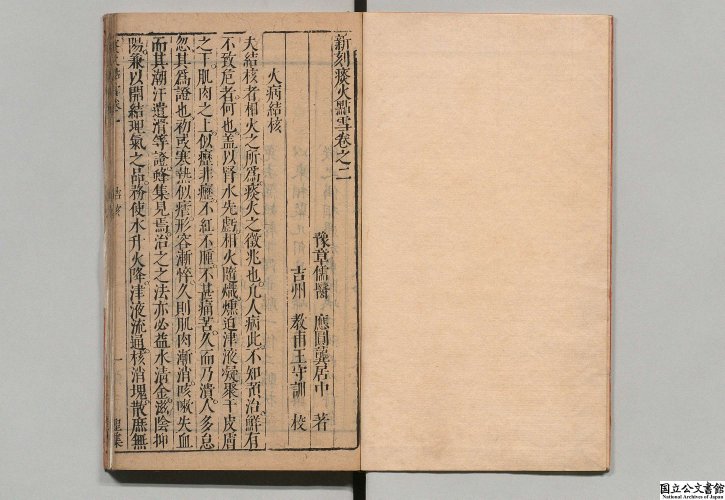 新刻痰火點雪卷之二
豫章儒醫　應圓龔居中　著
吉州　教甫王守訓　校
火病結核
夫結核者相火之所為痰火之徵兆也凡人病此不知預治鮮有
不致危者何也盖以腎水先虧相火隨熾燻迫津液凝聚于皮膚
之下肌肉之上似癧非癧不紅不腫不甚痛苦久而乃潰人多怠
忽其為證也初或寒熱似瘧形容漸悴久則肌肉漸消咳嗽失血
而其潮汗遺滑等證略集見焉治之之法亦必益水清金滋陰抑
陽兼以開結理氣之品務使水升火降津液流通核消塊散庶無
国立公文書館
National Archives of Japan